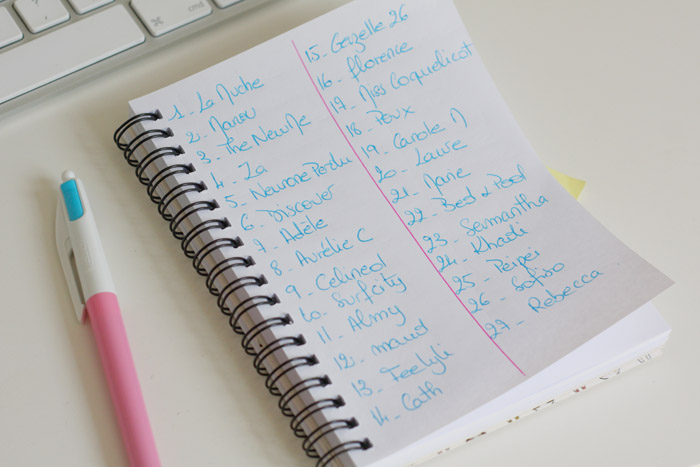 cmd
1. La Nuche
2. Manou
3. The NewMe
4. Za
5. Neurone Perdu
6. Discover
7. Adèle
8. Aurélie C
9. Celined
10. Surfcity
11. Almy
12. maud
13. Feelyli
14. Cath
15. Gazelle 26
16. Florence
17. Miss Coquelicot
18. Poux
19. Carole N
20. Laure
21. Marie
22. Bed & Pool
23. Samantha
24. Khadi
25. Peipei
26. Sofiso
27. Rebecca